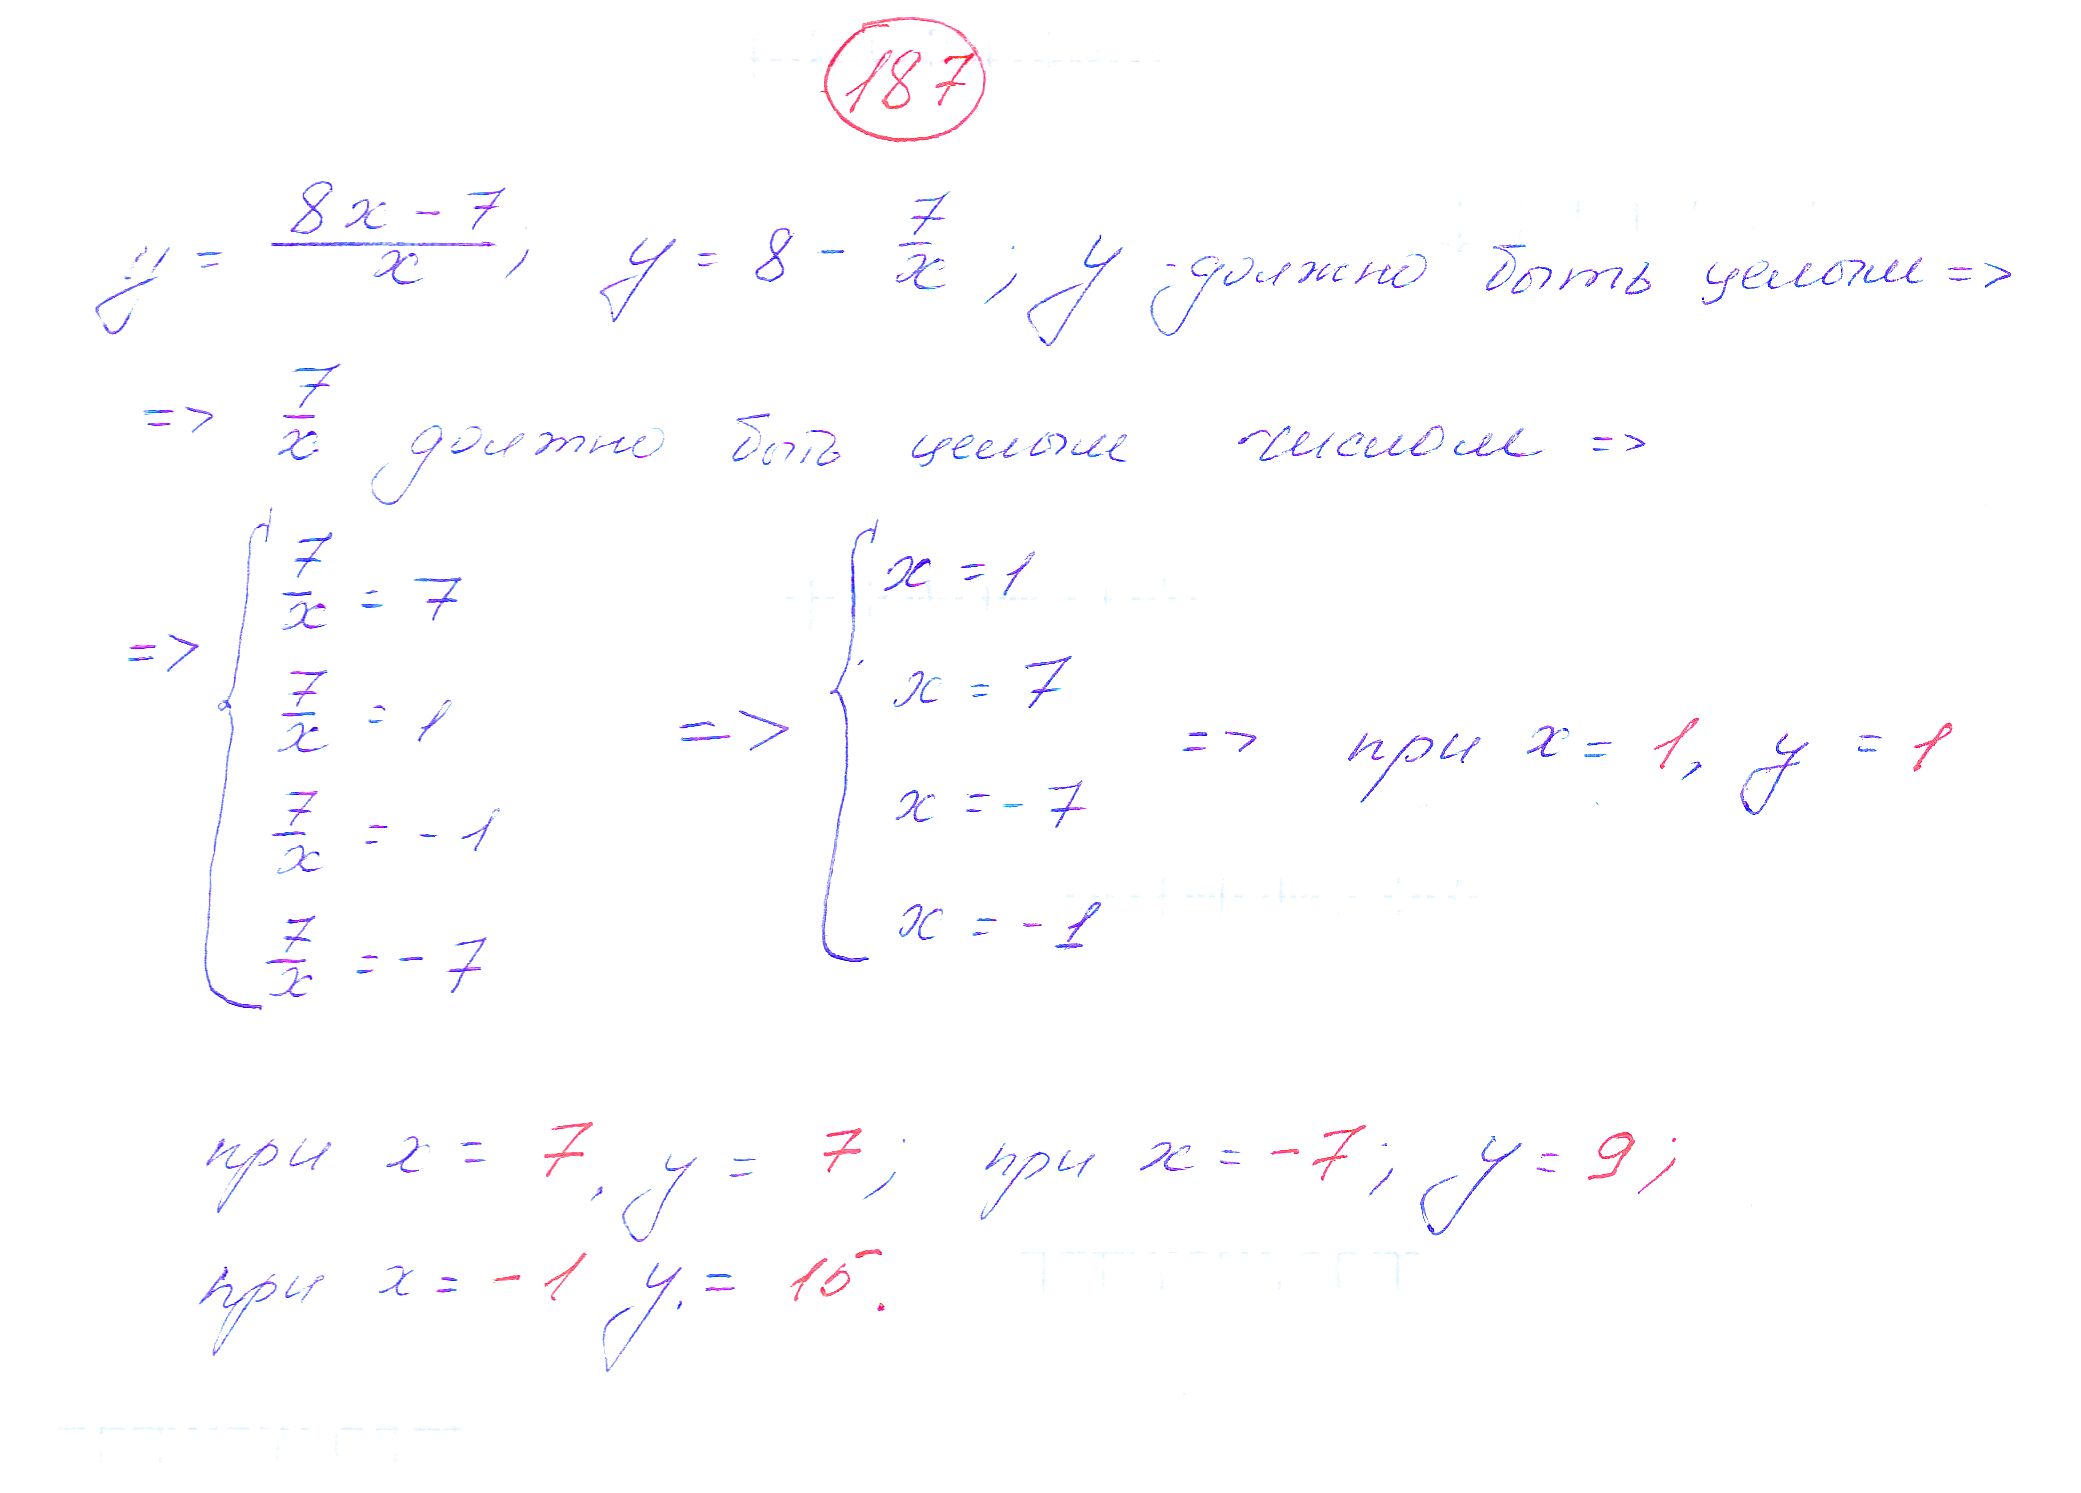 187
y = (8x - 7)/x, y = 8 - 7/x; y - должно быть целым =>
=> 7/x должно быть целым числом =>
=> { 7/x = 7 => { x = 1
7/x = 1 x = 7 => при x = 1, y = 1
7/x = -1 x = -7
7/x = -7 x = -1
при x = 7, y = 7; при x = -7; y = 9;
при x = -1 y. = 15.